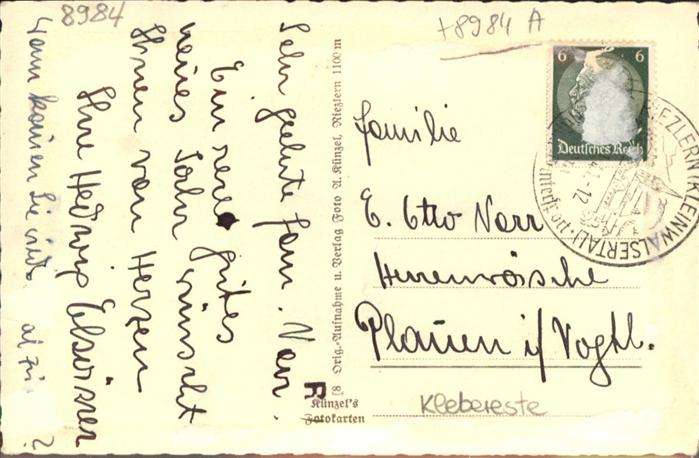 8984
+8984 A
Sehr geehrte Fam. Narr.
Ein recht gutes
neues Jahr wünscht
Ihnen von Herzen
Ihre Hedwig
Wann kommen Sie
?
f8 Orig.-Aufnahme u. Verlag Foto A. Künzel, Riezlern 1100 m
R
Künzel's
Fotokarten
Familie
E. Otto Narr
Herrenwäsche
Plauen i/Vogtl.
Klebereste
6 6
Deutsches Reich
RIEZLERN (KLEINWALSERTAL)
-12